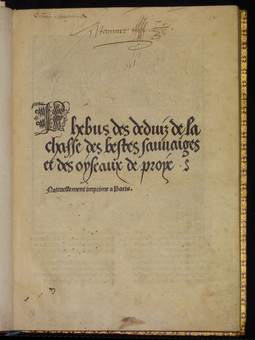 Phebus des deduiz de la
chasse des bestes sauuaiges
et des oyseaux de proye
Nouuellement imprime a Paris.